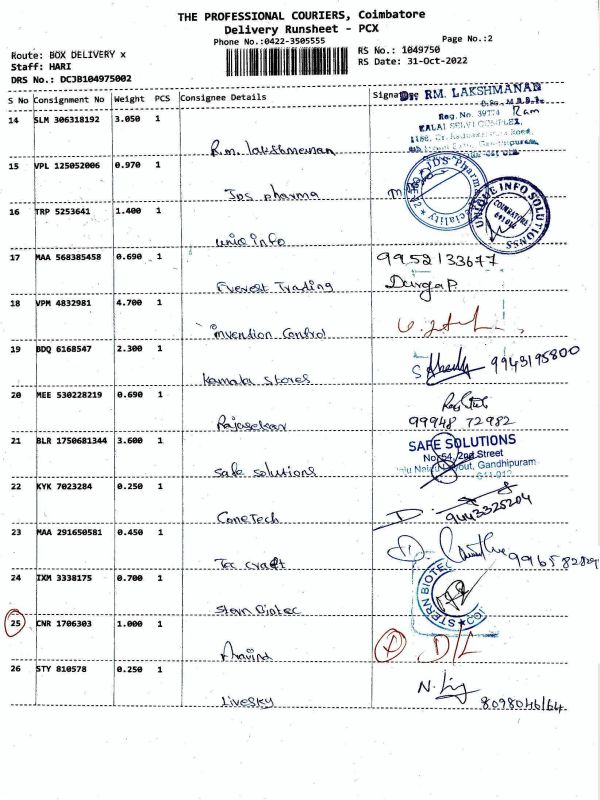 THE PROFESSIONAL COURIERS, Coimbatore
Delivery Runsheet - PCX
Phone No.:0422-3505555
Page No.:2
Route: BOX DELIVERY x
Staff: HARI
DRS No.: DCJB104975002
RS No.: 1049750
RS Date: 31-Oct-2022
S No Consignment No Weight PCS Consignee Details Signature
DR. RM. LAKSHMANAN
Reg. No. 39774 Ram
KALAI SELVI COMPLEX,
14 SLM 306318192 3.050 1
R.m. lakshmanan
15 VPL 125052006 0.970 1
JDS pharma
16 TRP 5253641 1.400 1
UNIQUE INFO SOLUTIONS
COIMBATORE
unic info
17 MAA 568385458 0.690 1
9952133677
Everest Trading
Durga P.
18 VPM 4832981 4.700 1
invention Control
19 BDQ 6168547 2.300 1
9943195800
Kamala stores
20 MEE 530228219 0.690 1
Rajasekar
99948 72982
21 BLR 1750681344 3.600 1
SAFE SOLUTIONS
No:54, 2nd Street
Gandhipuram
Safe solutions
22 KYK 7023284 0.250 1
ConeTech
9443325204
23 MAA 291650581 0.450 1
Tec craft
24 IXM 3338175 0.700 1
STERN BIOTEC
Stern Biotec
25 CNR 1706303 1.000 1
D/L
Aravind
26 STY 810578 0.250 1
Livesky
8098046164